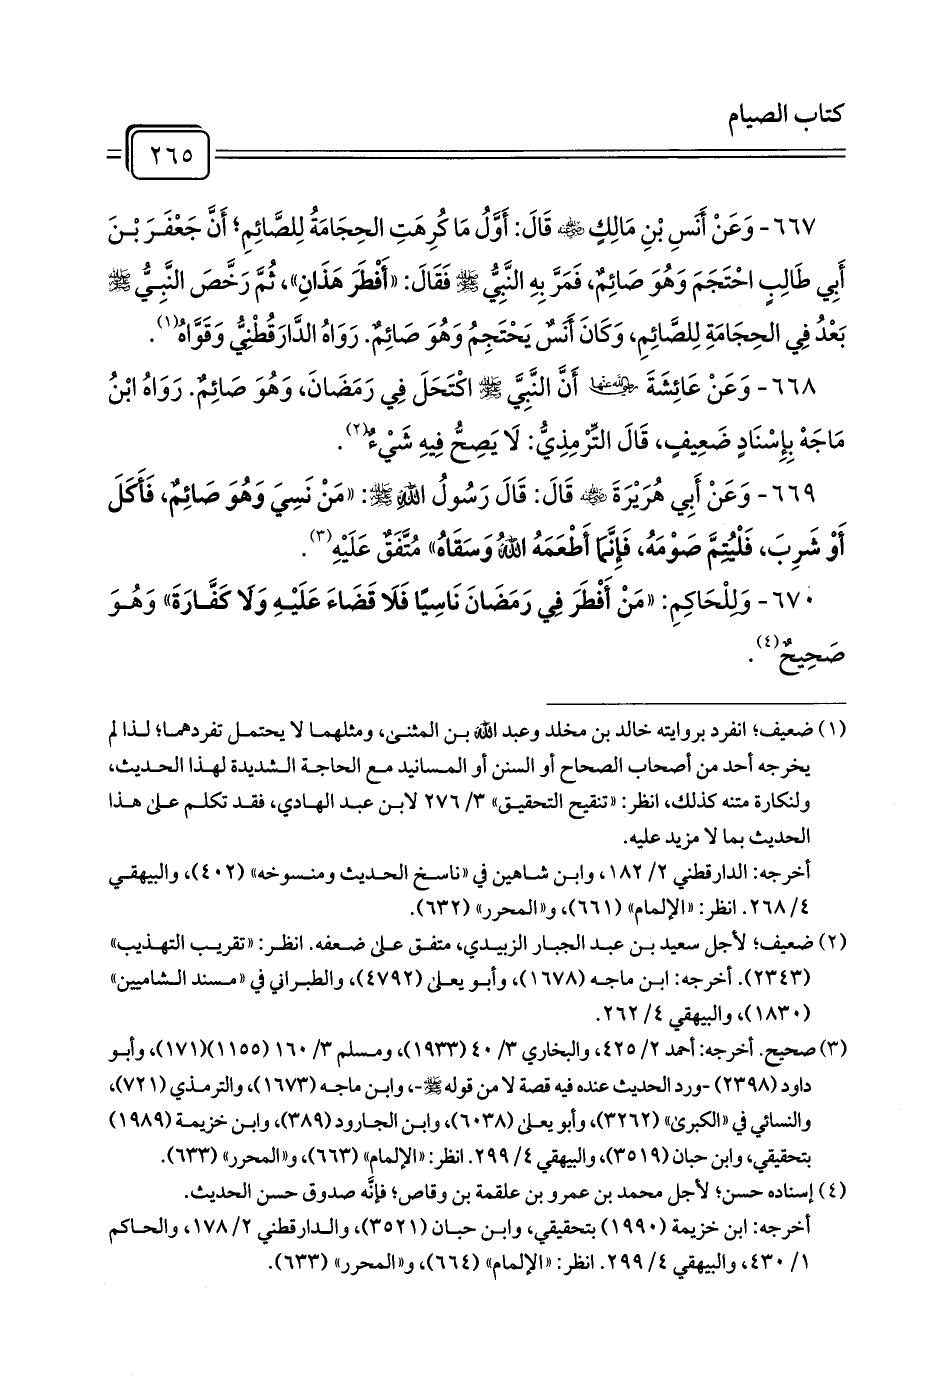 كتاب الصيام
٢٦٥
٦٦٧- وَعَنْ أَنَسِ بْنِ مَالِكٍ ﵁ قَالَ: أَوَّلُ مَا كُرِهَتِ الحِجَامَةُ لِلصَّائِمِ؛ أَنَّ جَعْفَرَ بْنَ
أَبِي طَالِبٍ احْتَجَمَ وَهُوَ صَائِمٌ، فَمَرَّ بِهِ النَّبِيُّ ﷺ فَقَالَ: «أَفْطَرَ هَذَانِ»، ثُمَّ رَخَّصَ النَّبِيُّ ﷺ
بَعْدُ فِي الحِجَامَةِ لِلصَّائِمِ، وَكَانَ أَنَسٌ يَحْتَجِمُ وَهُوَ صَائِمٌ. رَوَاهُ الدَّارَقُطْنِيُّ وَقَوَّاهُ(١).
٦٦٨- وَعَنْ عَائِشَةَ ﵂ أَنَّ النَّبِيَّ ﷺ اكْتَحَلَ فِي رَمَضَانَ، وَهُوَ صَائِمٌ. رَوَاهُ ابْنُ
مَاجَهْ بِإِسْنَادٍ ضَعِيفٍ، قَالَ التِّرْمِذِيُّ: لَا يَصِحُّ فِيهِ شَيْءٌ(٢).
٦٦٩- وَعَنْ أَبِي هُرَيْرَةَ ﵁ قَالَ: قَالَ رَسُولُ اللهِ ﷺ: «مَنْ نَسِيَ وَهُوَ صَائِمٌ، فَأَكَلَ
أَوْ شَرِبَ، فَلْيُتِمَّ صَوْمَهُ، فَإِنَّمَا أَطْعَمَهُ اللهُ وَسَقَاهُ» مُتَّفَقٌ عَلَيْهِ(٣).
٦٧٠- وَلِلْحَاكِمِ: «مَنْ أَفْطَرَ فِي رَمَضَانَ نَاسِيًا فَلَا قَضَاءَ عَلَيْهِ وَلَا كَفَّارَةَ» وَهُوَ
صَحِيحٌ(٤).
(١) ضعيف؛ انفرد بروايته خالد بن مخلد وعبد الله بن المثنى، ومثلهما لا يحتمل تفردهما؛ لذا لم
يخرجه أحد من أصحاب الصحاح أو السنن أو المسانيد مع الحاجة الشديدة لهذا الحديث،
ولنكارة متنه كذلك، انظر: «تنقيح التحقيق» ٣/ ٢٧٦ لابن عبد الهادي، فقد تكلم على هذا
الحديث بما لا مزيد عليه.
أخرجه: الدارقطني ٢/ ١٨٢، وابن شاهين في «ناسخ الحديث ومنسوخه» (٤٠٢)، والبيهقي
٤/ ٢٦٨. انظر: «الإلمام» (٦٦١)، و«المحرر» (٦٣٢).
(٢) ضعيف؛ لأجل سعيد بن عبد الجبار الزبيدي، متفق على ضعفه. انظر: «تقريب التهذيب»
(٢٣٤٣). أخرجه: ابن ماجه (١٦٧٨)، وأبو يعلى (٤٧٩٢)، والطبراني في «مسند الشاميين»
(١٨٣٠)، والبيهقي ٤/ ٢٦٢.
(٣) صحيح. أخرجه: أحمد ٢/ ٤٢٥، والبخاري ٣/ ٤٠ (١٩٣٣)، ومسلم ٣/ ١٦٠ (١١٥٥)(١٧١)، وأبو
داود (٢٣٩٨) -ورد الحديث عنده فيه قصة لا من قوله ﷺ-، وابن ماجه (١٦٧٣)، والترمذي (٧٢١)،
والنسائي في «الكبرى» (٣٢٦٢)، وأبو يعلى (٦٠٣٨)، وابن الجارود (٣٨٩)، وابن خزيمة (١٩٨٩)
بتحقيقي، وابن حبان (٣٥١٩)، والبيهقي ٤/ ٢٩٩. انظر: «الإلمام» (٦٦٣)، و«المحرر» (٦٣٣).
(٤) إسناده حسن؛ لأجل محمد بن عمرو بن علقمة بن وقاص؛ فإنَّه صدوق حسن الحديث.
أخرجه: ابن خزيمة (١٩٩٠) بتحقيقي، وابن حبان (٣٥٢١)، والدارقطني ٢/ ١٧٨، والحاكم
١/ ٤٣٠، والبيهقي ٤/ ٢٩٩. انظر: «الإلمام» (٦٦٤)، و«المحرر» (٦٣٣).